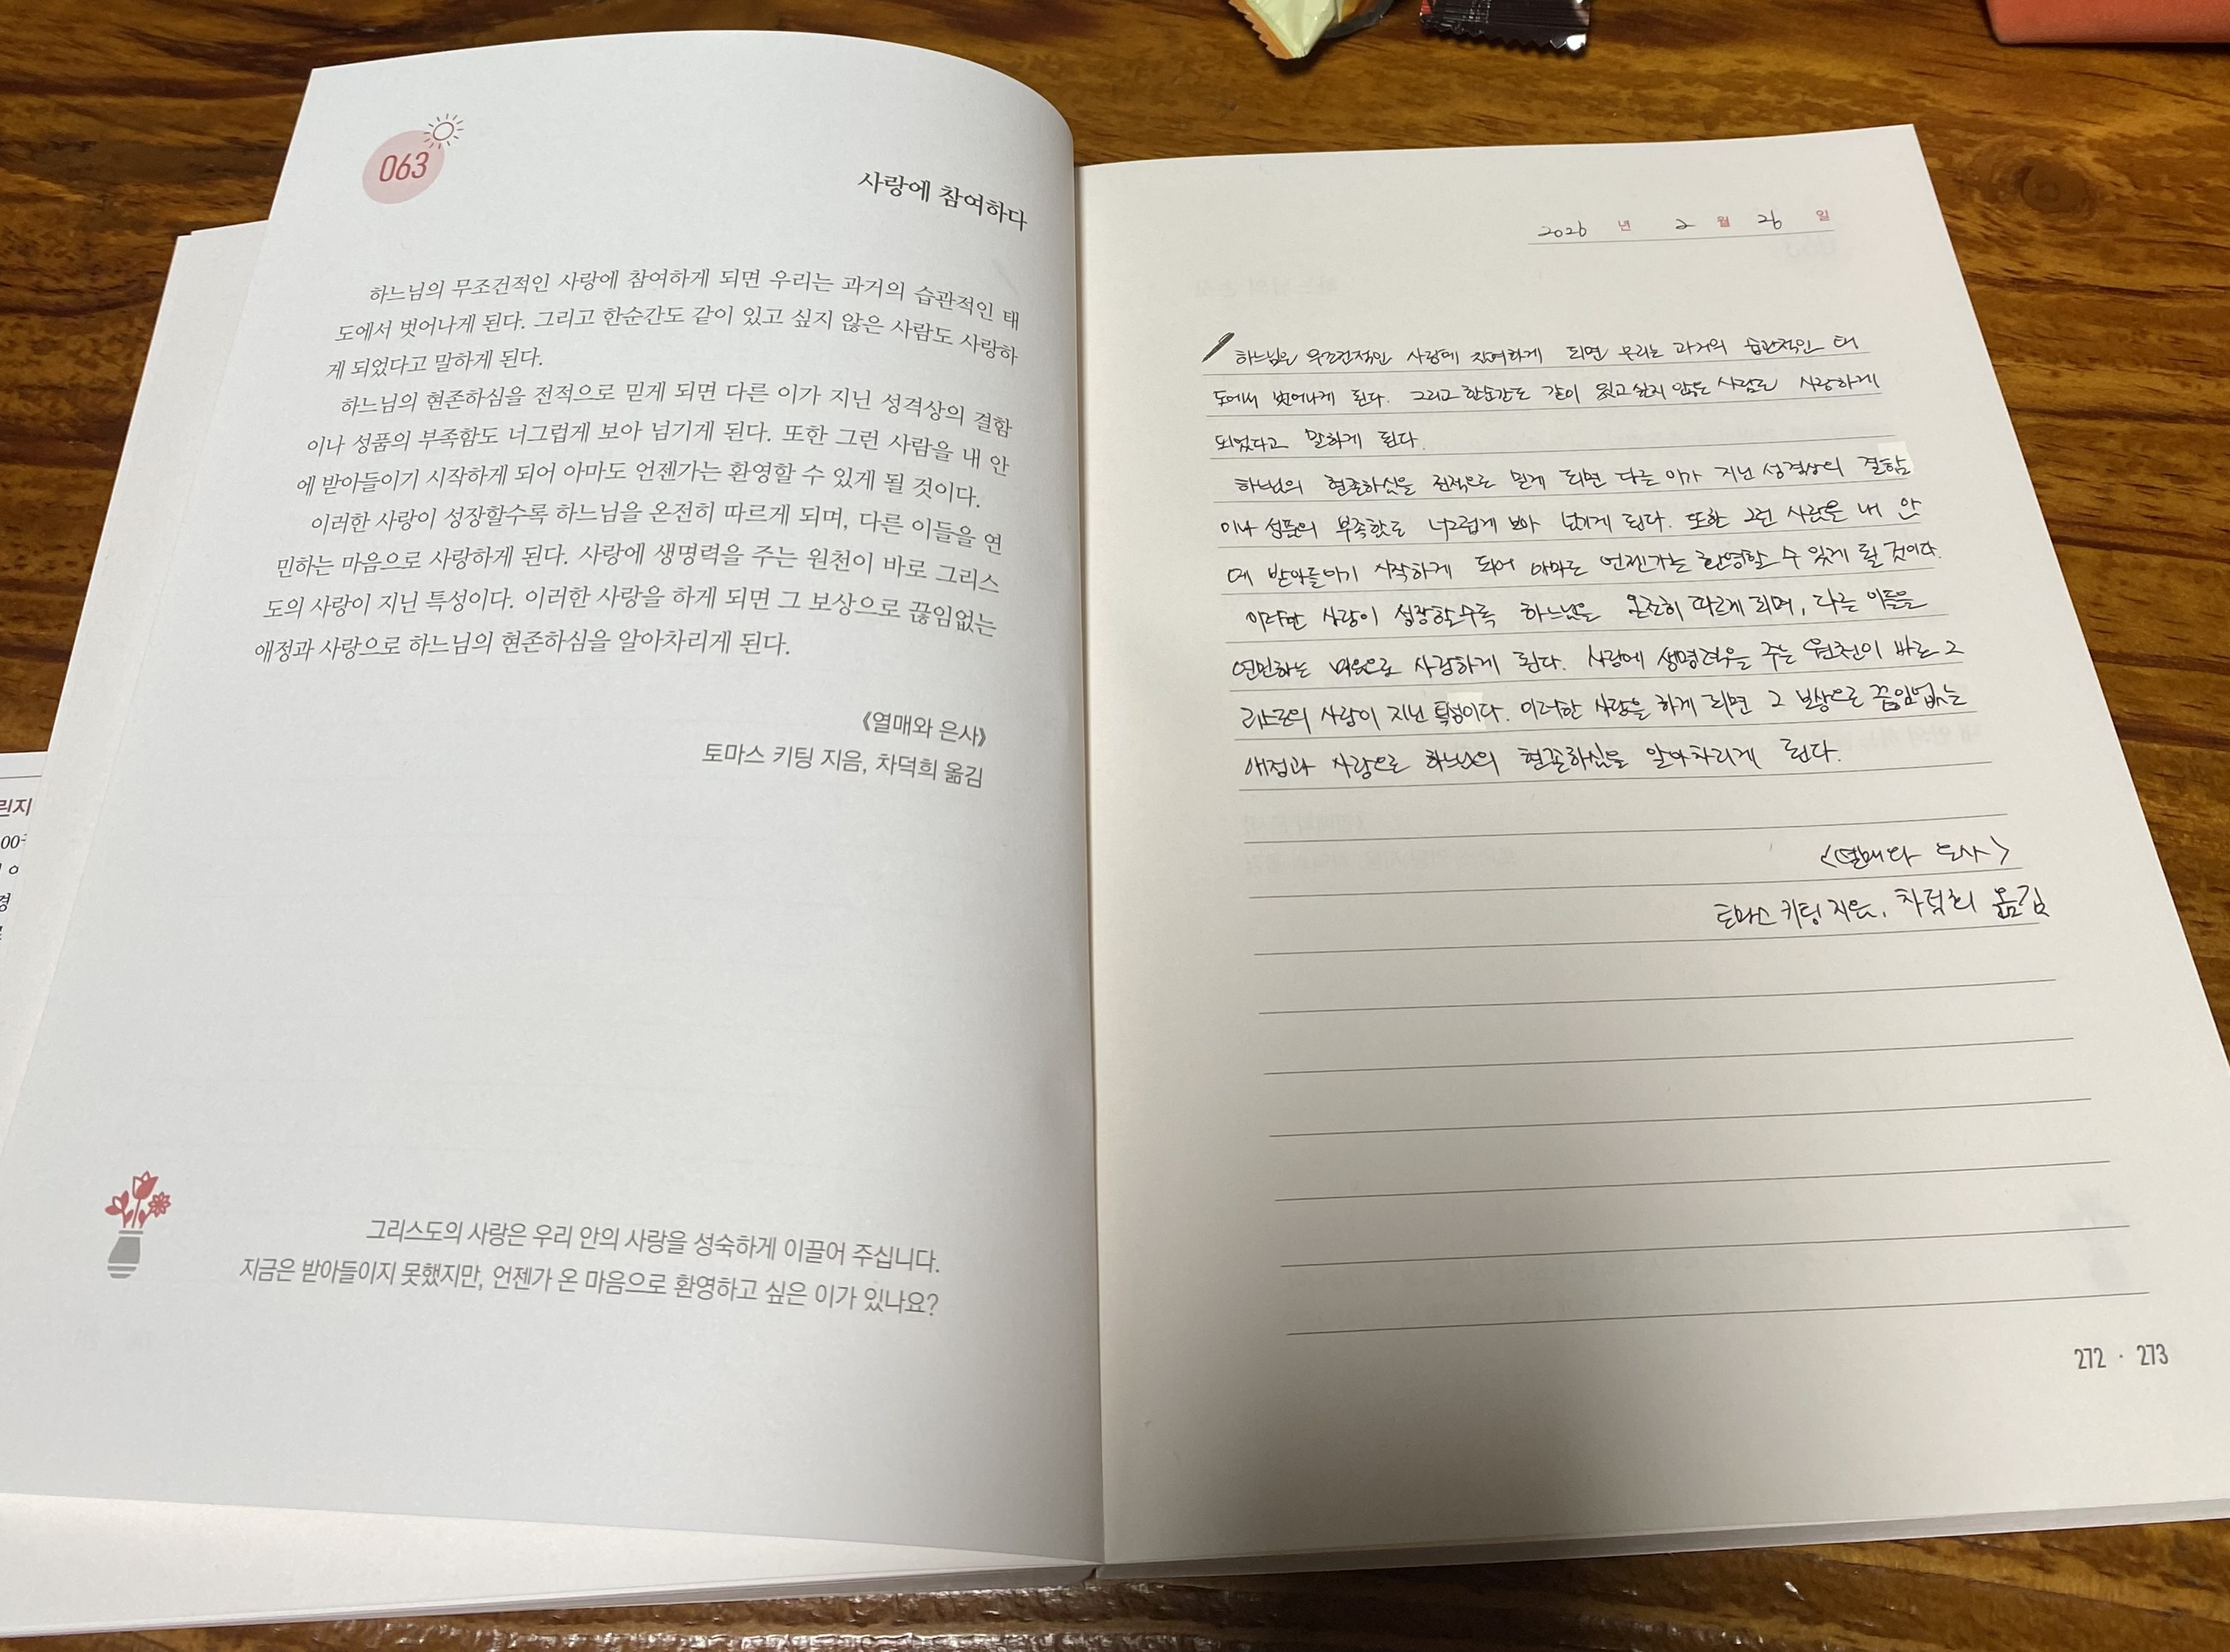 063
사랑에 참여하다
하느님의 무조건적인 사랑에 참여하게 되면 우리는 과거의 습관적인 태
도에서 벗어나게 된다. 그리고 한순간도 같이 있고 싶지 않은 사람도 사랑하
게 되었다고 말하게 된다.
하느님의 현존하심을 전적으로 믿게 되면 다른 이가 지닌 성격상의 결함
이나 성품의 부족함도 너그럽게 보아 넘기게 된다. 또한 그런 사람을 내 안
에 받아들이기 시작하게 되어 아마도 언젠가는 환영할 수 있게 될 것이다.
이러한 사랑이 성장할수록 하느님을 온전히 따르게 되며, 다른 이들을 연
민하는 마음으로 사랑하게 된다. 사랑에 생명력을 주는 원천이 바로 그리스
도의 사랑이 지닌 특성이다. 이러한 사랑을 하게 되면 그 보상으로 끊임없는
애정과 사랑으로 하느님의 현존하심을 알아차리게 된다.
《열매와 은사》
토마스 키팅 지음, 차덕희 옮김
그리스도의 사랑은 우리 안의 사랑을 성숙하게 이끌어 주십니다.
지금은 받아들이지 못했지만, 언젠가 온 마음으로 환영하고 싶은 이가 있나요?
린지
경
2026 년 2 월 26 일
하느님은 무조건적인 사랑에 참여하게 되면 우리는 과거의 습관적인 태
도에서 벗어나게 된다. 그리고 한순간도 같이 있고 싶지 않은 사람도 사랑하게
되었다고 말하게 된다.
하느님의 현존하심을 전적으로 믿게 되면 다른 이가 지닌 성격상의 결함
이나 성품의 부족함도 너그럽게 보아 넘기게 된다. 또한 그런 사람을 내 안
에 받아들이기 시작하게 되어 아마도 언젠가는 환영할 수 있게 될 것이다.
이러한 사랑이 성장할수록 하느님을 온전히 따르게 되며, 다른 이들을
연민하는 마음으로 사랑하게 된다. 사랑에 생명력을 주는 원천이 바로 그
리스도의 사랑이 지닌 특성이다. 이러한 사랑을 하게 되면 그 보상으로 끊임없는
애정과 사랑으로 하느님의 현존하심을 알아차리게 된다.
<열매와 은사>
토마스 키팅 지음, 차덕희 옮김
272 · 273